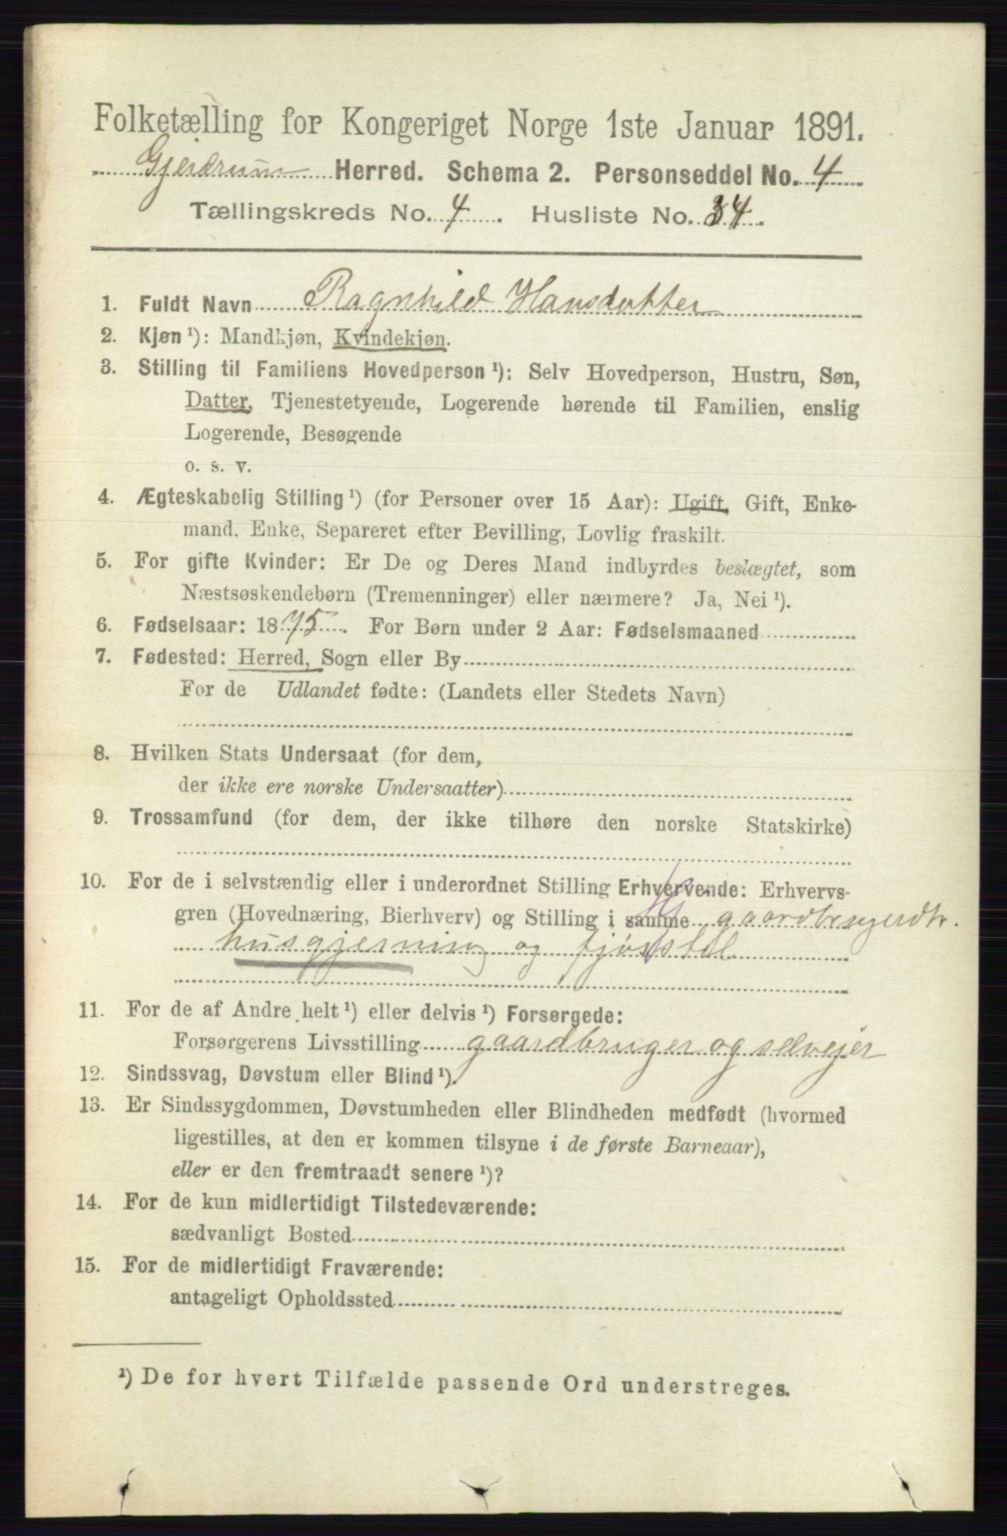 Folketælling for Kongeriget Norge 1ste Januar 1891.
Gjerdrum Herred. Schema 2. Personseddel No. 4
Tællingskreds No. 4. Husliste No. 34.
1. Fuldt Navn Ragnhild Hansdatter
2. Kjøn ¹): Mandkjøn, Kvindekjøn.
3. Stilling til Familiens Hovedperson ¹): Selv Hovedperson, Hustru, Søn,
Datter, Tjenestetyende, Logerende hørende til Familien, enslig
Logerende, Besøgende
o. s. v.
4. Ægteskabelig Stilling ¹) (for Personer over 15 Aar): Ugift, Gift, Enke-
mand, Enke, Separeret efter Bevilling, Lovlig fraskilt.
5. For gifte Kvinder: Er De og Deres Mand indbyrdes beslægtet, som
Næstsøskendebørn (Tremenninger) eller nærmere? Ja, Nei ¹).
6. Fødselsaar: 1875. For Børn under 2 Aar: Fødselsmaaned
7. Fødested: Herred, Sogn eller By
For de Udlandet fødte: (Landets eller Stedets Navn)
8. Hvilken Stats Undersaat (for dem,
der ikke ere norske Undersaatter)
9. Trossamfund (for dem, der ikke tilhøre den norske Statskirke)
10. For de i selvstændig eller i underordnet Stilling Erhvervende: Erhvervs-
gren (Hovednæring, Bierhverv) og Stilling i samme gaardbrugerdtr.
husgjerning og fjøsstel
11. For de af Andre helt ¹) eller delvis ¹) Forsørgede:
Forsørgerens Livsstilling gaardbruger og selvejer
12. Sindssvag, Døvstum eller Blind ¹).
13. Er Sindssygdommen, Døvstumheden eller Blindheden medfødt (hvormed
ligestilles, at den er kommen tilsyne i de første Barneaar),
eller er den fremtraadt senere ¹)?
14. For de kun midlertidigt Tilstedeværende:
sædvanligt Bosted
15. For de midlertidigt Fraværende:
antageligt Opholdssted
¹) De for hvert Tilfælde passende Ord understreges.